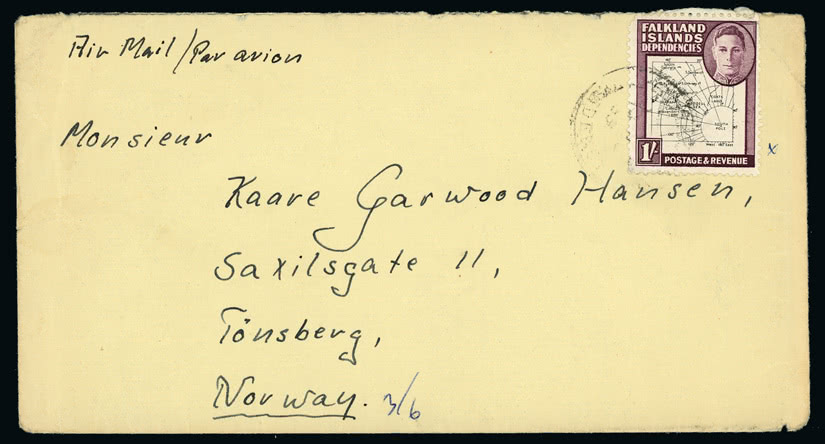 Air Mail/Par avion
FALKLAND
ISLANDS
DEPENDENCIES
SOUTH
POLE
1/-
POSTAGE & REVENUE
x
Monsieur
Kaare Garwood Hansen,
Saxilsgate 11,
Tönsberg,
Norway. 3/6